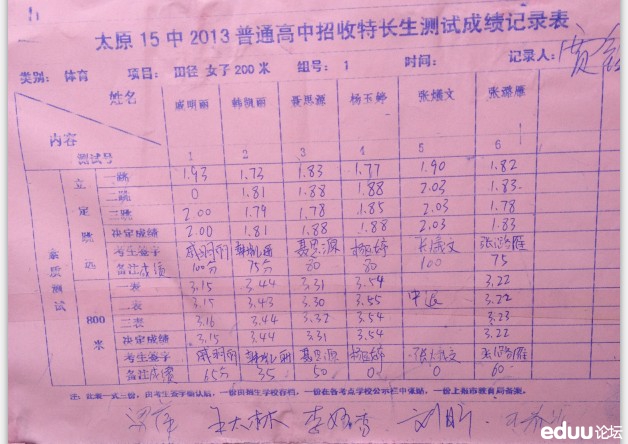 太原15中2013普通高中招收特长生测试成绩记录表
类别: 体育 项目: 田径 女子200米 组号: 1 时间: 记录人:
姓名 戚明丽 韩凯丽 聂思源 杨玉婷 张 文 张潞雁
内容
测试号 1 2 3 4 5 6
素质测试
立定跳远
一跳 1.93 1.73 1.83 1.77 1.90 1.82
二跳 0 1.81 1.88 1.88 2.03 1.83
三跳 2.00 1.79 1.78 1.85 2.03 1.78
决定成绩 2.00 1.81 1.88 1.88 2.03 1.83
考生签字 聂思源 张潞雁
备注成绩 100分 75分 80 80 100 75
800米
一表 3.15 3.44 3.31 3.54 3.22
二表 3.15 3.43 3.30 3.55 中退 3.22
三表 3.16 3.44 3.32 3.54 3.23
决定成绩 3.15 3.44 3.31 3.54 3.22
考生签字 聂思源 张潞雁
备注成绩 65分 35 50 0 0 60
注: 此表一式三份, 由考生签字确认后, 一份由招生学校存档, 一份在各考点学校公示栏中张贴, 一份上报市教育局备案。
eduu论坛